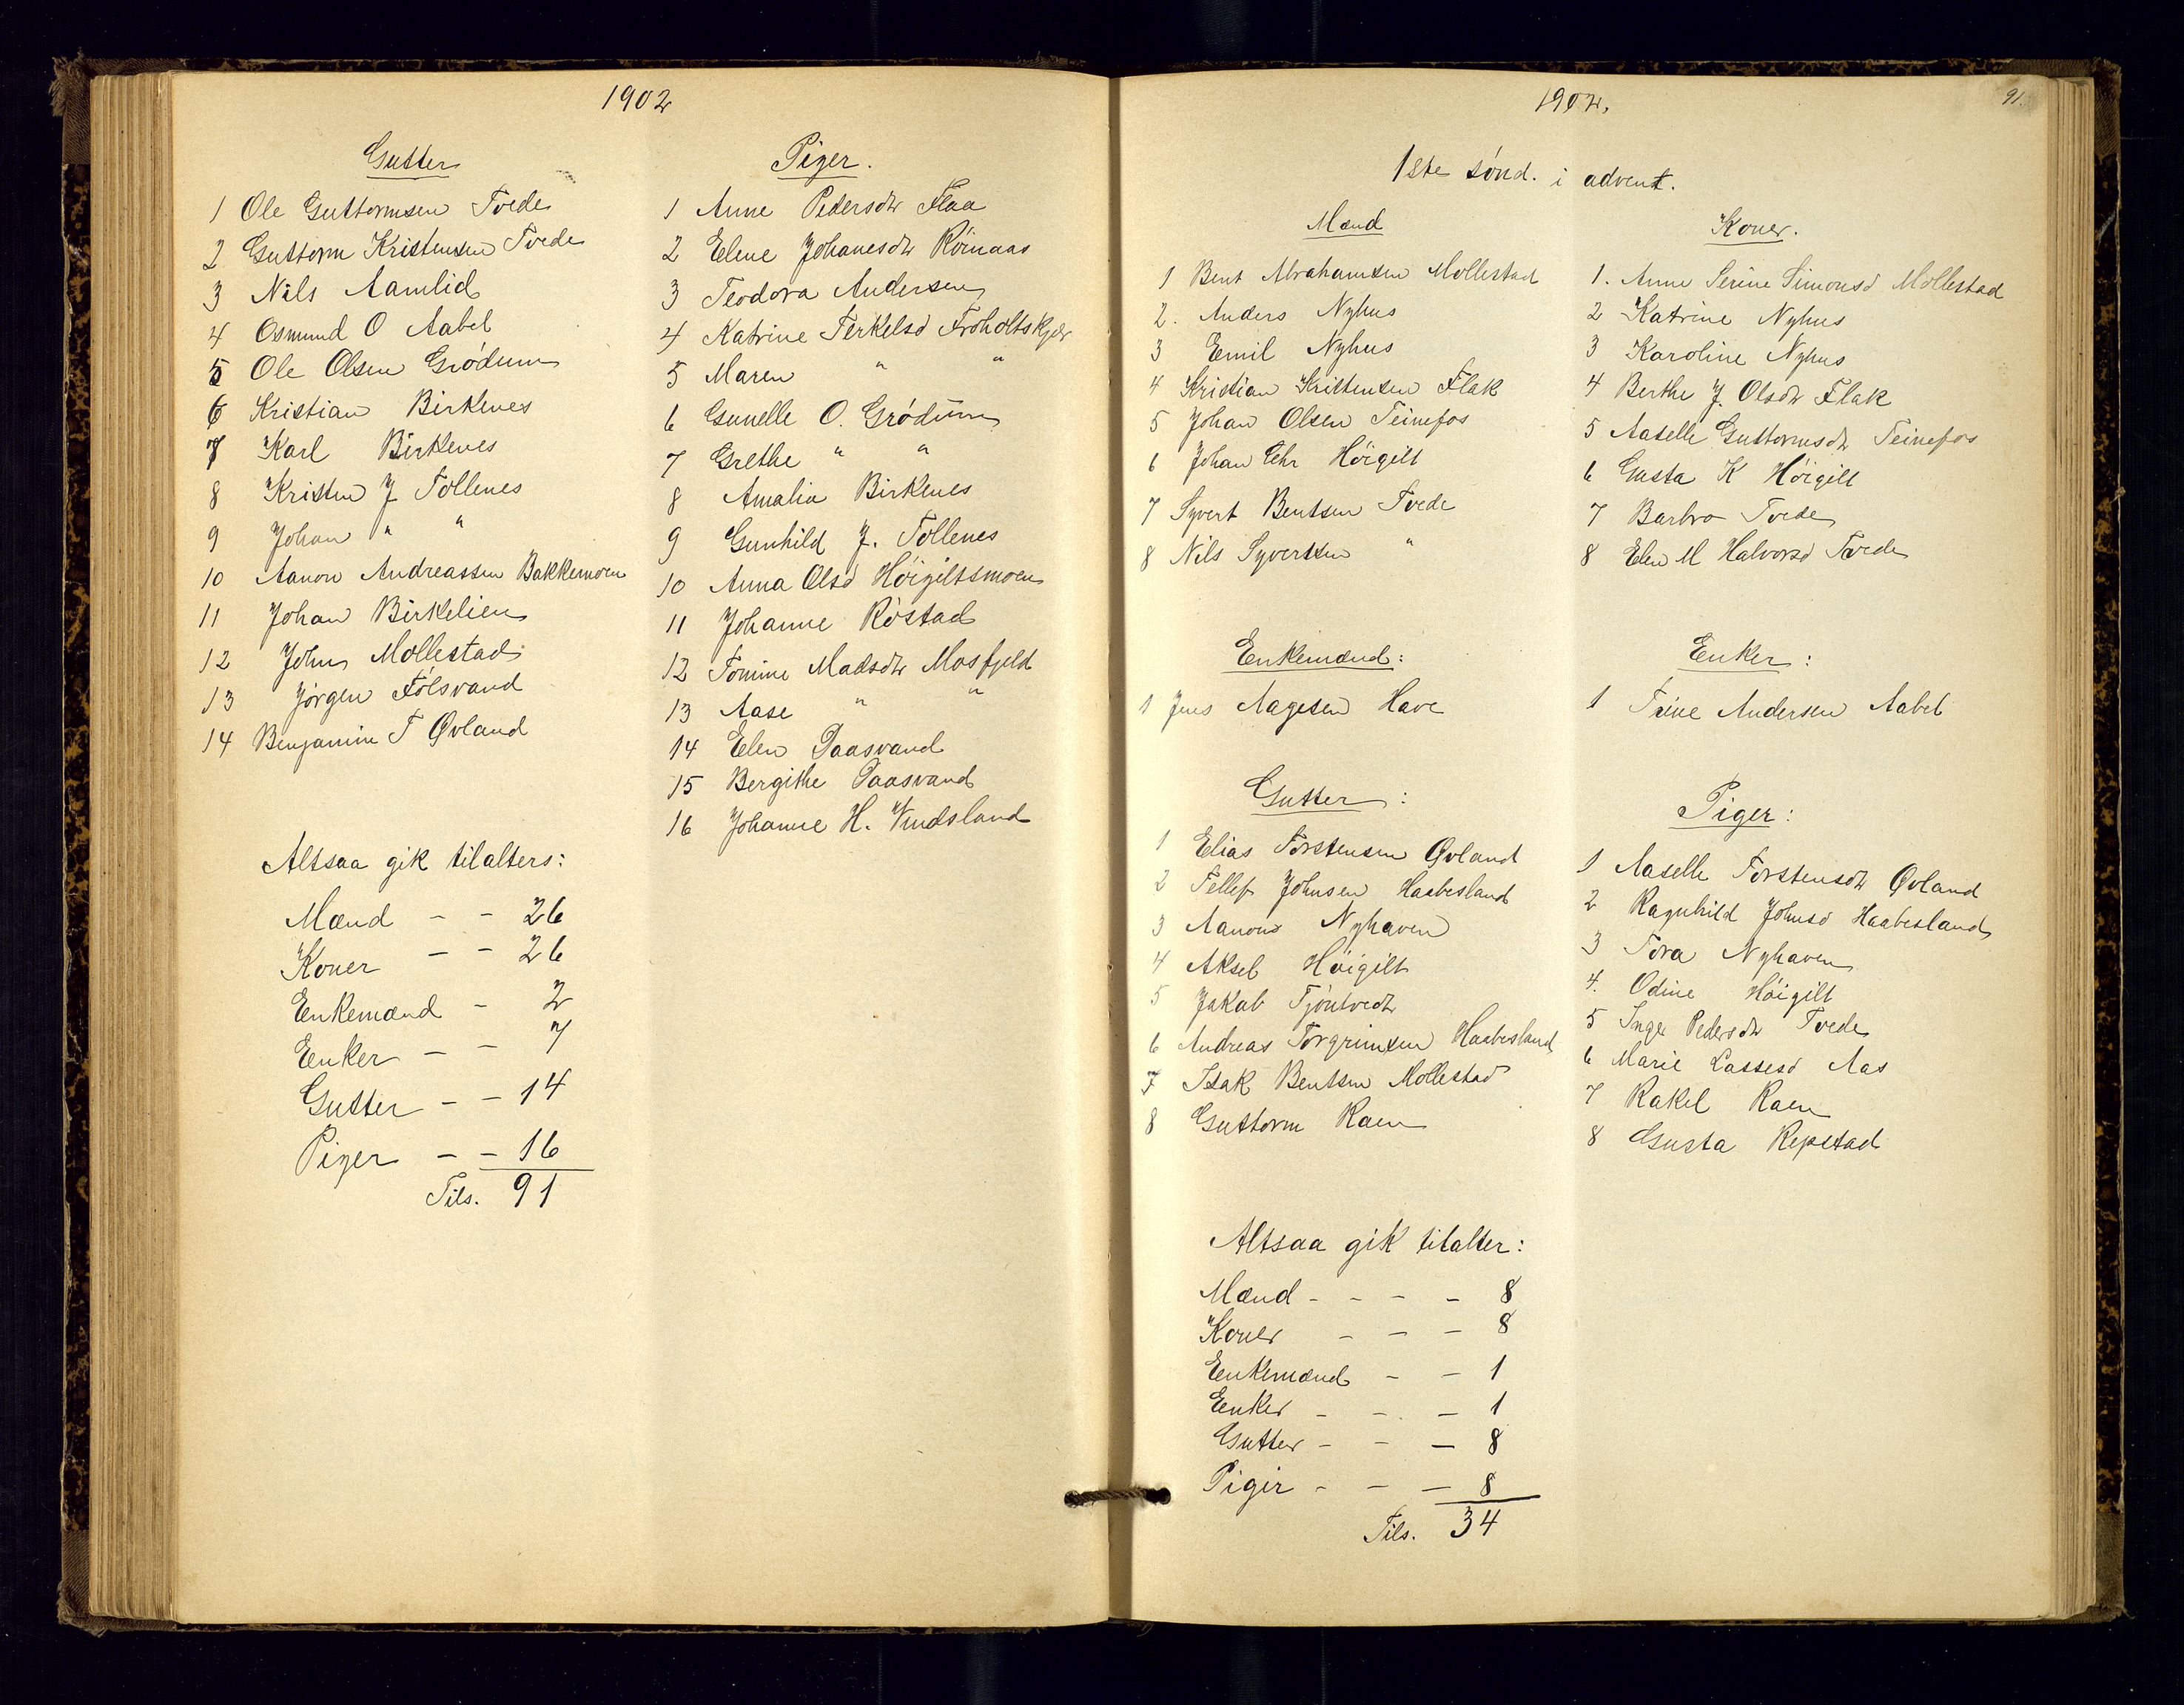 1902
Gutter
1 Ole Guttormsen Tvede
2 Guttorm Kristensen Tvede
3 Nils Aamlid
4 Osmund O Aabel
5 Ole Olsen Grödum
6 Kristian Birkenes
7 Karl Birkenes
8 Kristen J Tollenes
9 Johan " "
10 Aanon Andreassen Bakkemoen
11 Johan Birkelien
12 John Mollestad
13 Jörgen Fölsvand
14 Benjamin T Øvland
Altsaa gik tilalters:
Mænd - - 26
Koner - - 26
Enkemænd - 2
Enker - - 7
Gutter - - 14
Piger - - 16
Tils. 91
Piger.
1 Anne Pedersdtr Flaa
2 Elene Johanesdtr Röinaas
3 Teodora Andersen
4 Katrine Terkelsd Froholtskjer
5 Maren " "
6 Gunelle O. Grödum
7 Grethe " "
8 Amalia Birkenes
9 Gunhild J. Tollenes
10 Anna Olsd Höigiltsmoen
11 Johanne Röstad
12 Tomine Madsdtr Mosfjeld
13 Aase " "
14 Elen Paasvand
15 Bergithe Paasvand
16 Johanne H. Vindsland
1902.
91.
1ste sönd. i advent.
Mænd
1 Bent Abrahamsen Mollestad
2. Anders Nyhus
3 Emil Nyhus
4 Kristian Kristensen Flak
5 Johan Olsen Teinefos
6 Johan Chr Höigilt
7 Syvert Bentsen Tvede
8 Nils Syvertsen "
Koner.
1. Anne Serine Simonsd Mollestad
2 Katrine Nyhus
3 Karoline Nyhus
4 Berthe J. Olsdtr Flak
5 Aaselle Guttormsdtr Teinefos
6 Gusta K Höigilt
7 Barbro Tvede
8 Elen M Halvorsd Tvede
Enkemænd:
1 Jens Aagesen Have
Enker:
1 Trine Andersen Aabel
Gutter:
1 Elias Torstensen Øvland
2 Tellef Johnsen Haabesland
3 Aanon Nyhaven
4 Aksel Höigilt
5 Jakob Tjöntvedt
6 Andreas Torgrimsen Haabesland
7 Isak Bentsen Mollestad
8 Guttorm Raen
Piger:
1 Aaselle Torstensdtr Øvland
2 Ragnhild Johnsd Haabesland
3 Tora Nyhaven
4. Odine Höigilt
5 Inge Pedersdtr Tvede
6 Marie Lassesd Aas
7 Rakel Raen
8 Gusta Repstad
Altsaa gik tilalter:
Mænd - - - - 8
Koner - - - 8
Enkemænd - - 1
Enker - - - 1
Gutter - - - 8
Pigir - - - 8
Tils. 34